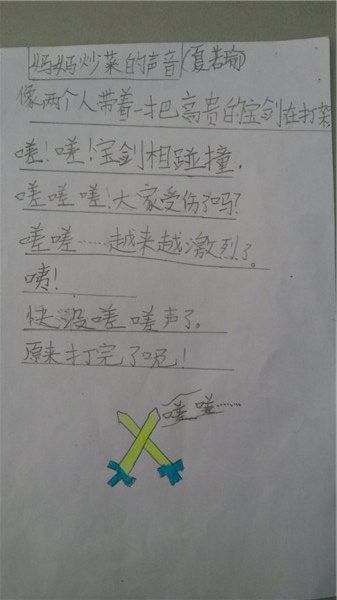 妈妈炒菜的声音(夏若瑜)
像两个人带着一把高贵的宝剑在打架
嗟!嗟!宝剑相碰撞.
嗟嗟嗟!大家受伤了吗?
嗟嗟……越来越激烈了。
咦!
快没嗟嗟声了。
原来打完了呢!
嗟嗟……